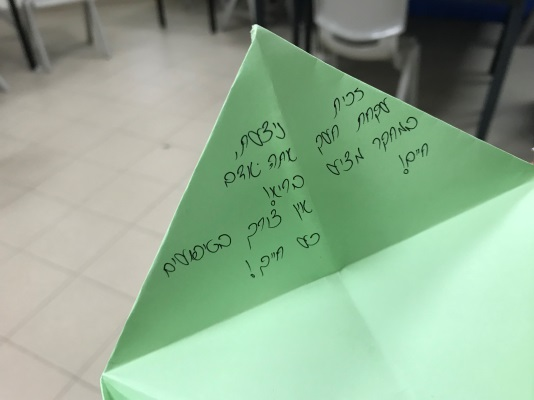 זכית
לקחת חלק
במחקר מציל
חיים!
ניצלת,
אתה אדם
בריא!
אין צורך בטיפולים
כל חייך!